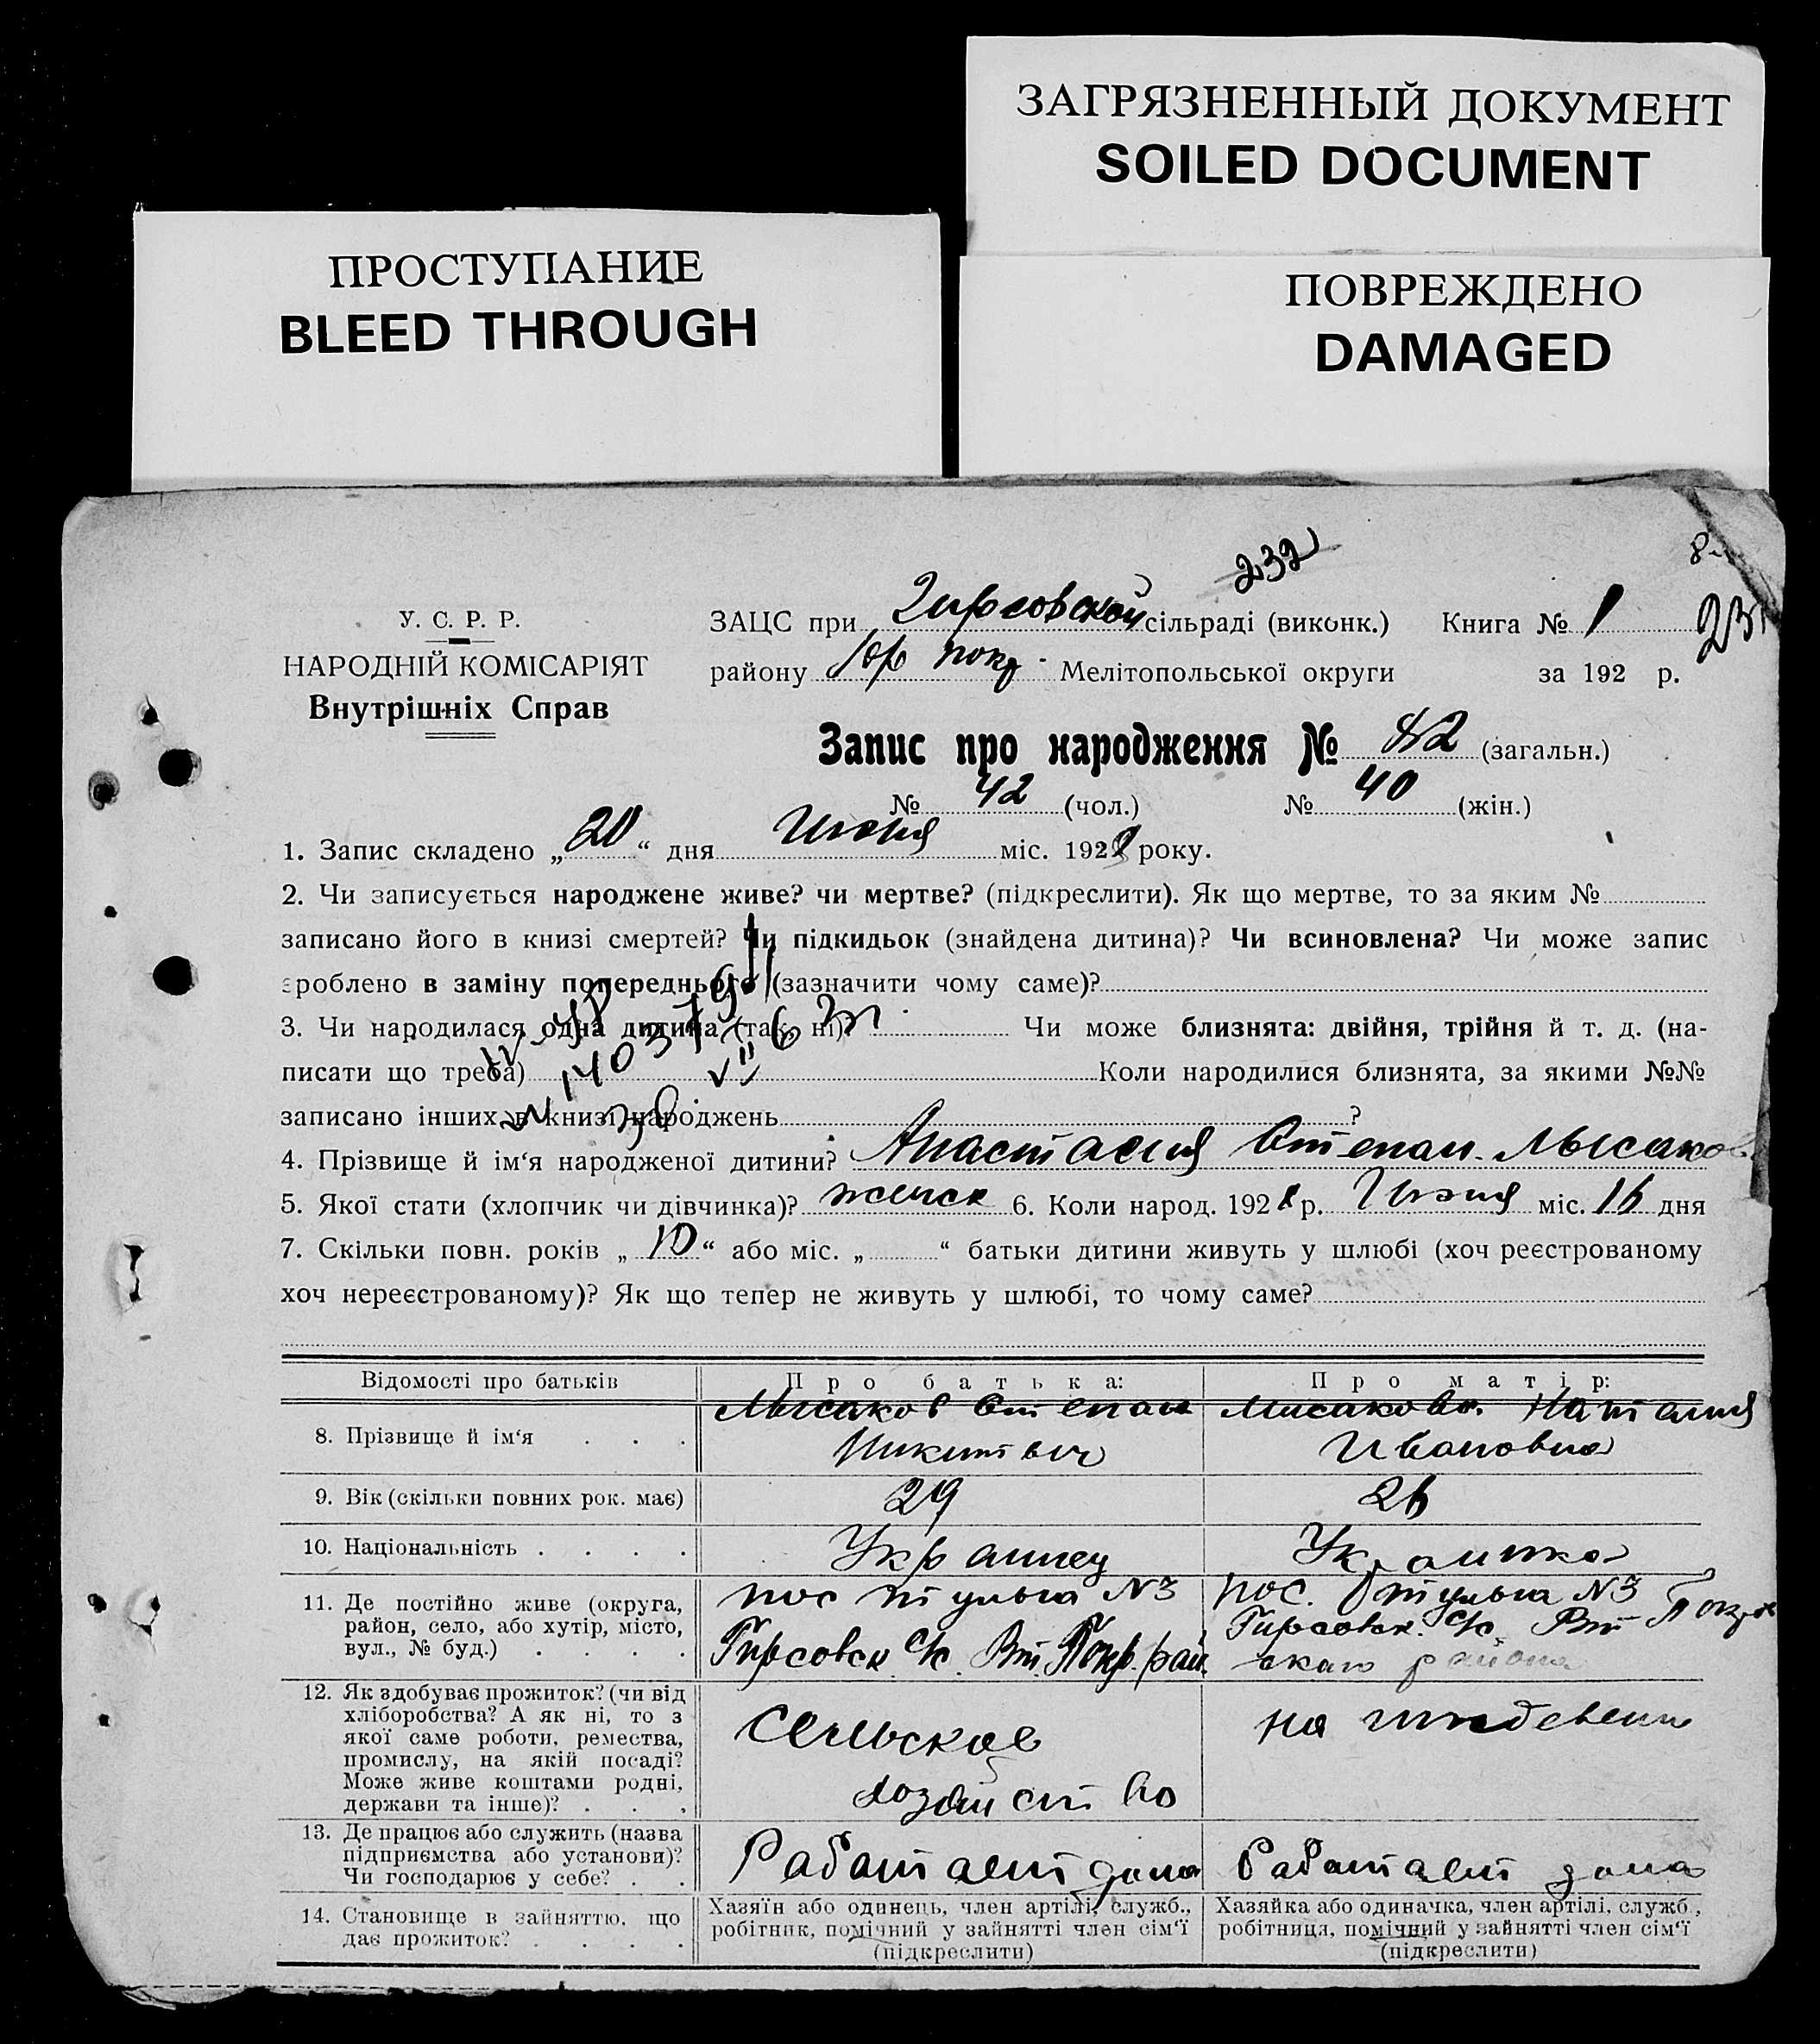 ЗАГРЯЗНЕННЫЙ ДОКУМЕНТ
SOILED DOCUMENT
ПРОСТУПАНИЕ
BLEED THROUGH
ПОВРЕЖДЕНО
DAMAGED
232
У. С. Р. Р.
НАРОДНІЙ КОМІСАРІЯТ
Внутрішніх Справ
ЗАЦС при Гирсовской сільраді (виконк.) Книга № 1
району Мелітопольської округи за 192 р.
Запис про народження № 82 (загальн.)
№ 42 (чол.) № 40 (жін.)
1. Запис складено „20“ дня Июня міс. 1928 року.
2. Чи записується народжене живе? чи мертве? (підкреслити). Як що мертве, то за яким №
записано його в книзі смертей? Чи підкидьок (знайдена дитина)? Чи всиновлена? Чи може запис
зроблено в заміну попереднього (зазначити чому саме)?
3. Чи народилася одна дитина (так, ні)? Чи може близнята: двійня, трійня й т. д. (на-
писати що треба) Коли народилися близнята, за якими №№
записано інших в книзі народжень ?
4. Прізвище й ім‘я народженої дитини? Анастасия Степан. Лысаков
5. Якої стати (хлопчик чи дівчинка)? женск 6. Коли народ. 1928 р. Июня міс. 16 дня
7. Скільки повн. років „10“ або міс. „ “ батьки дитини живуть у шлюбі (хоч реєстрованому
хоч нереєстрованому)? Як що тепер не живуть у шлюбі, то чому саме?
Відомості про батьків Про батька: Про матір:
8. Прізвище й ім‘я . . . Лысаков Степан Никитович Лисакова Наталия Ивановна
9. Вік (скільки повних рок. має) 29 26
10. Національність . . . . Украинец Украинка
11. Де постійно живе (округа,
район, село, або хутір, місто,
вул., № буд.) . . . .
пос Отульга №3
Гирсовск с/с. Вт. Покр. рай.
пос. Отульга №3
Гирсовск. с/с. Вт Покров
скаго района
12. Як здобуває прожиток? (чи від
хліборобства? А як ні, то з
якої саме роботи, ремества,
промислу, на якій посаді?
Може живе коштами родні,
держави та інше)? . . .
Сельское
хозяйство
на иждевении
13. Де працює або служить (назва
підприємства або установи)?
Чи господарює у себе? . .
Работает дома
Работает дома
14. Становище в зайняттю, що
дає прожиток? . . . .
Хазяїн або одинець, член артілі, служб.,
робітник, помічний у зайнятті член сім‘ї
(підкреслити)
Хазяйка або одиначка, член артілі, служб.,
робітниця, помічний у зайнятті член сім‘ї
(підкреслити)